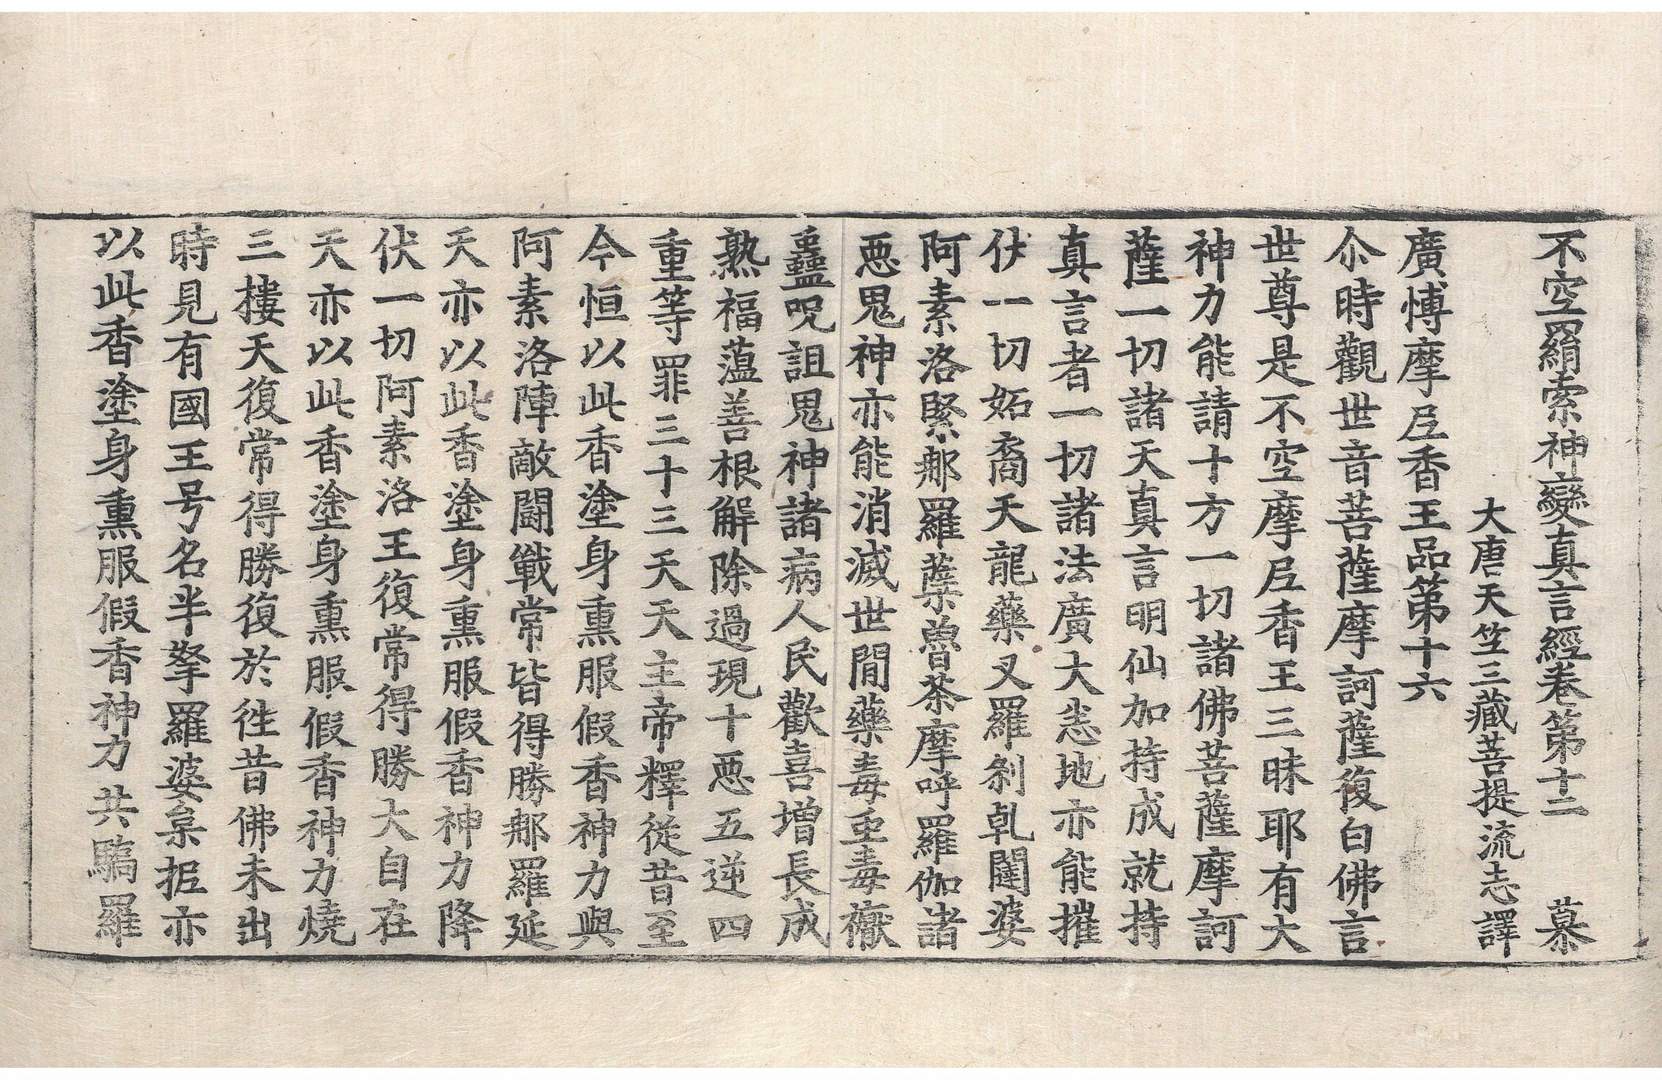 不空羂索神變真言經卷第十二　慕
大唐天竺三藏菩提流志譯
廣愽摩尼香王品第十六
尒時觀世音菩薩摩訶薩復白佛言
世尊是不空摩尼香王三昧耶有大
神力能請十方一切諸佛菩薩摩訶
薩一切諸天真言明仙加持成就持
真言者一切諸法廣大悉地亦能摧
伏一切妬裔天龍藥叉羅剎乹闥婆
阿素洛緊那羅蘗魯荼摩呼羅伽諸
惡鬼神亦能消滅世閒藥毒虫毒獥
蠱呪詛鬼神諸病人民歡喜增長成
熟福薀善根解除過現十惡五逆四
重等罪三十三天天主帝釋從昔至
今恒以此香塗身熏服假香神力與
阿素洛陣敵鬪戰常皆得勝那羅延
天亦以此香塗身熏服假香神力降
伏一切阿素洛王復常得勝大自在
天亦以此香塗身熏服假香神力燒
三樓天復常得勝復於往昔佛未出
時見有國王号名半拏羅婆枲抳亦
以此香塗身熏服假香神力共驕羅